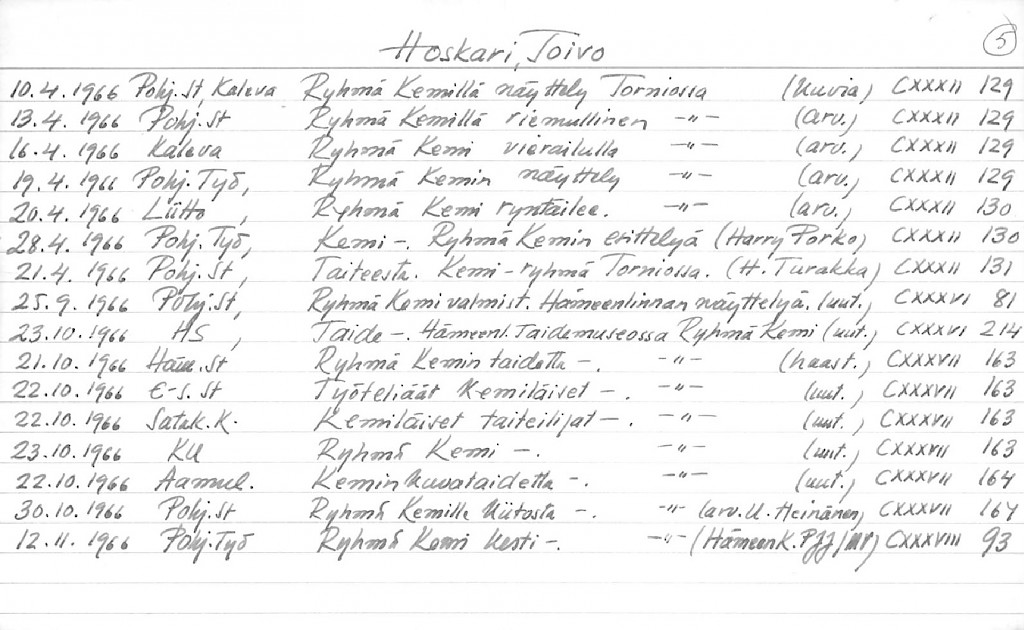 Hoskari, Toivo 5
10.4.1966 Pohj.St, Kaleva Ryhmä Kemillä näyttely Torniossa (kuvia) CXXXII 129
13.4.1966 Pohj.St Ryhmä Kemillä riemullinen -"- (arv.) CXXXII 129
16.4.1966 Kaleva Ryhmä Kemi vierailulla -"- (arv.) CXXXII 129
19.4.1966 Pohj.Työ, Ryhmä Kemin näyttely -"- (arv.) CXXXII 129
20.4.1966 Liitto, Ryhmä Kemi ryntäilee. -"- (arv.) CXXXII 130
28.4.1966 Pohj.Työ, Kemi-. Ryhmä Kemin erittelyä (Harry Porko) CXXXII 130
21.4.1966 Pohj.St, Taiteesta. Kemi-ryhmä Torniossa. (H. Turakka) CXXXII 131
25.9.1966 Pohj.St, Ryhmä Kemi valmist. Hämeenlinnan näyttelyä. (uut.) CXXXVI 81
23.10.1966 HS, Taide-. Hämeenl. Taidemuseossa Ryhmä Kemi (uut.) CXXXVI 214
21.10.1966 Häm.St Ryhmä Kemin taidetta -. -"- (haast.) CXXXVII 163
22.10.1966 E-S.St Työteliäät kemiläiset -. -"- (uut.) CXXXVII 163
22.10.1966 Satak.K. Kemiläiset taiteilijat -. -"- (uut.) CXXXVII 163
23.10.1966 KU Ryhmä Kemi -. -"- (uut.) CXXXVII 163
22.10.1966 Aamul. Kemin kuvataidetta -. -"- (uut.) CXXXVII 164
30.10.1966 Pohj.St Ryhmä Kemille kiitosta -. -"- (arv. U. Heinänen) CXXXVII 164
12.11.1966 Pohj.Työ Ryhmä Kemi kesti -. -"- (HämeenK. PJJ) CXXXVIII 93